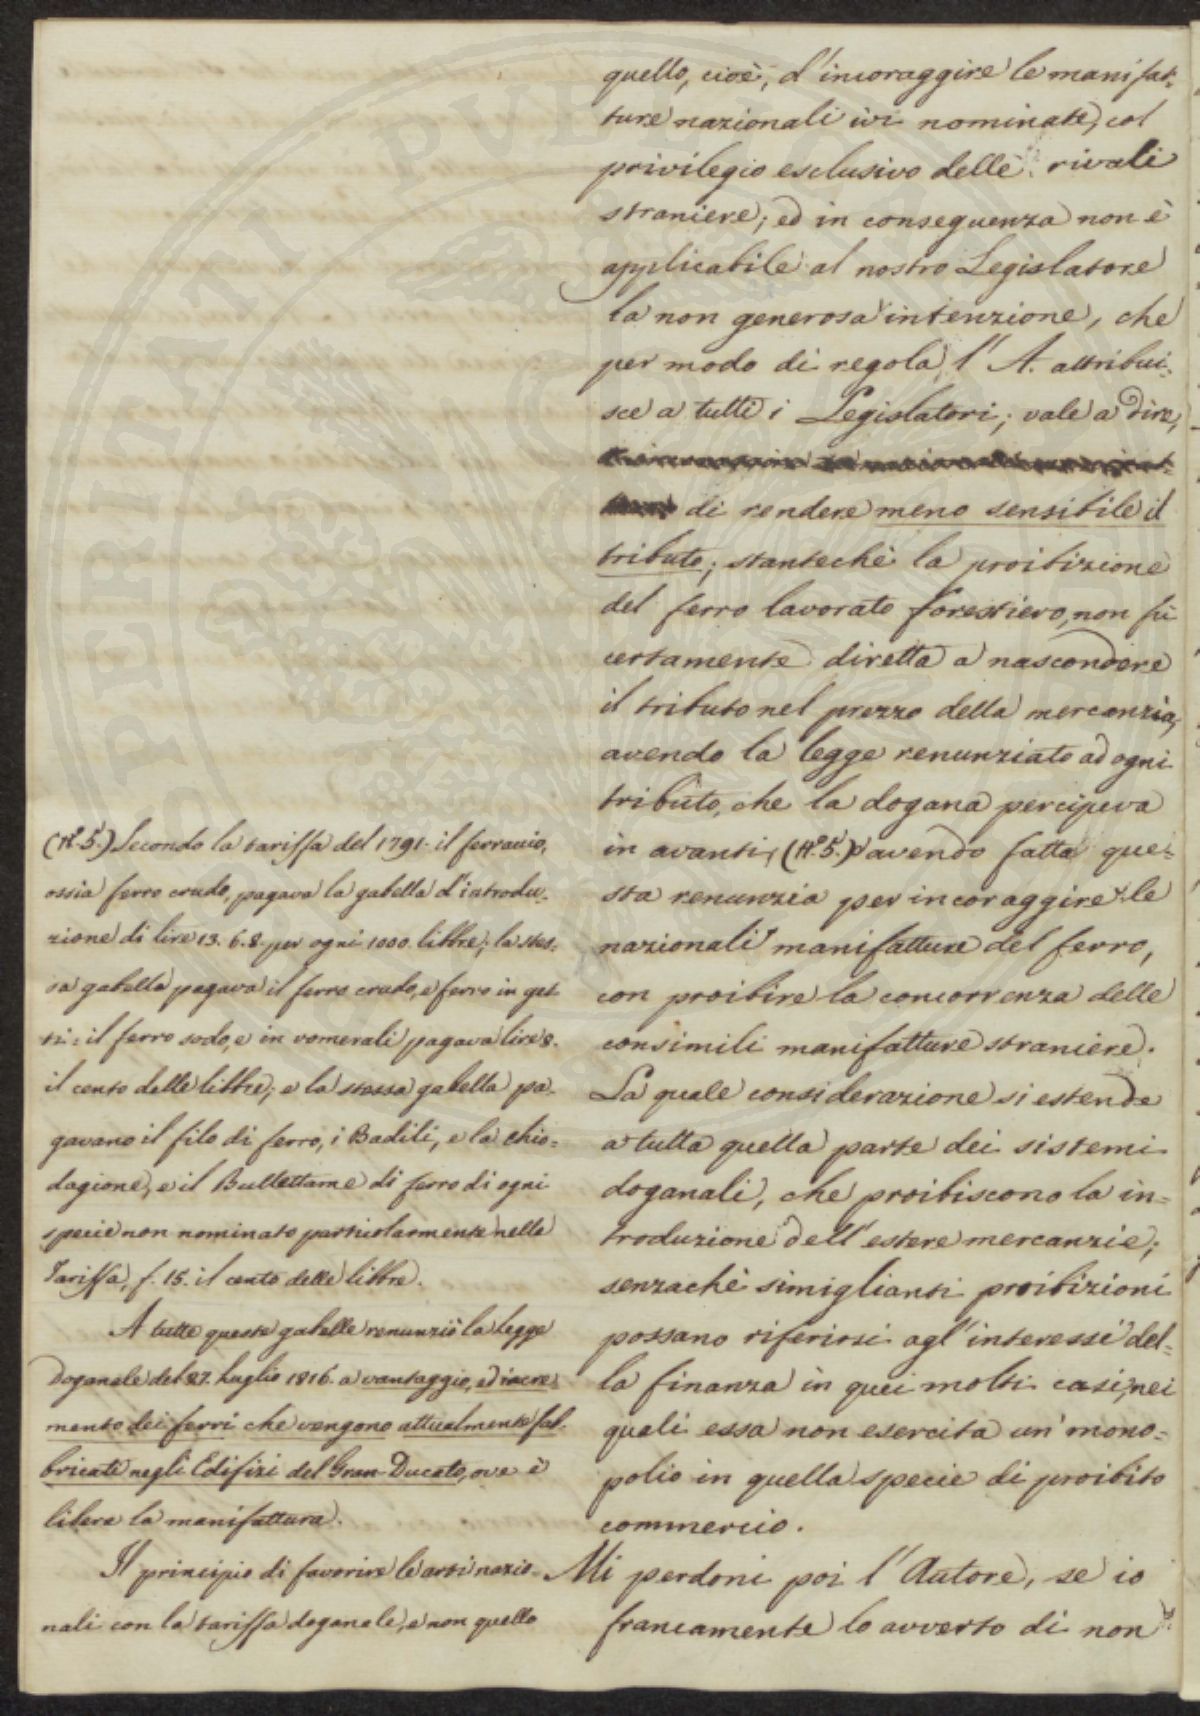 quello, cioè, d'incoraggire le manifat-
ture nazionali ivi nominate, col
privilegio esclusivo delle rivali
straniere; ed in conseguenza non è
applicabile al nostro Legislatore
la non generosa intenzione, che
per modo di regola l'A. attribui-
sce a tutti i Legislatori; vale a dire,
di rendere meno sensibile il
tributo; stantechè la proibizione
del ferro lavorato forestiero, non fù
certamente diretta a nascondere
il tributo nel prezzo della mercanzia,
avendo la legge renunziato ad ogni
tributo, che la dogana percipeva
in avanti, (N.° 5.) avendo fatta que-
sta renunzia per incoraggire le
nazionali manifatture del ferro,
con proibire la concorrenza delle
consimili manifatture straniere.
La quale considerazione si estende
a tutta quella parte dei sistemi
doganali, che proibiscono la in-
troduzione dell'estere mercanzie;
senzachè simiglianti proibizioni
possano riferirsi agl'interessi del-
la finanza in quei molti casi, nei
quali essa non esercita un mono-
polio in quella specie di proibito
commercio.
Mi perdoni poi l'Autore, se io
francamente lo avverto di non
(N.° 5.) Secondo la tariffa del 1791. il ferraccio,
ossia ferro crudo, pagava la gabella d'introdu-
zione di lire 13. 6. 8. per ogni 1000. libbre; la stes-
sa gabella pagava il ferro crudo, e ferro in get-
ti: il ferro sodo, e in vomerali pagava lire 8.
il cento delle libbre; e la stessa gabella pa-
gavano il filo di ferro, i Badili, e la chio-
dagione, e il Bullettame di ferro di ogni
specie non nominato particolarmente nella
Tariffa, f. 15. il cento delle libbre.
A tutte queste gabelle renunziò la legge
Doganale del 27. Luglio 1816. a vantaggio, ed incre-
mento dei ferri che vengono attualmente fab-
bricati negli Edifizi del Gran-Ducato, ove è
libera la manifattura.
Il principio di favorire le arti nazio-
nali con la tariffa doganale, e non quello